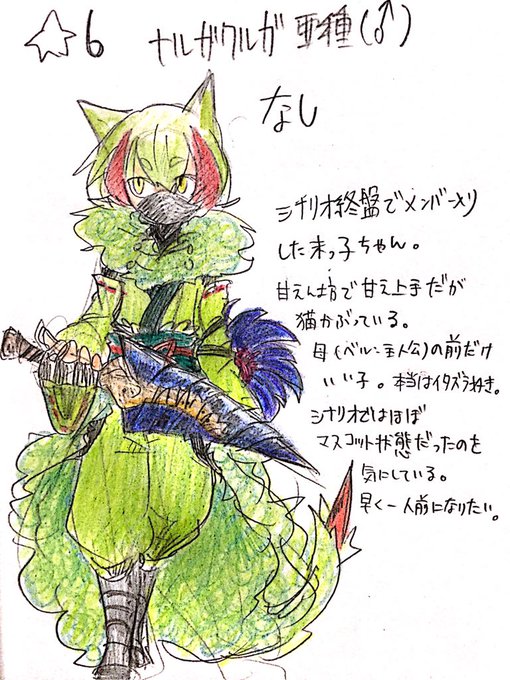 ☆6 ナルガクルガ亜種(♂)
なし
シナリオ終盤でメンバー入り
した末っ子ちゃん。
甘えん坊で甘え上手だが
猫かぶっている。
母(ベル:主人公)の前だけ
いい子。本当はイタズラ好き。
シナリオではほぼ
マスコット状態だったのを
気にしている。
早く一人前になりたい。